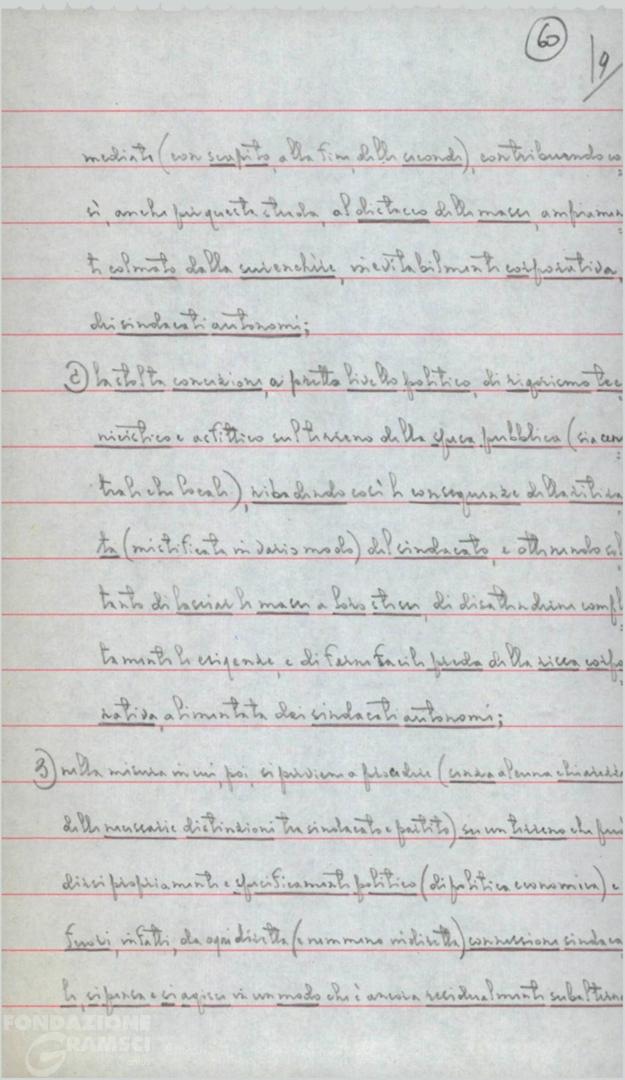 60
9
mediate (con scapito, alla fine, delle seconde), contribuendo co=
sì, anche per questa strada, al distacco delle masse, ampiamen=
te colmato dalla surenchère, inevitabilmente corporativa,
dei sindacati autonomi;
c) la stolta concezione, a pretto livello politico, di rigorismo tec=
nicistico e asfittico sul terreno della spesa pubblica (sia cen=
trali che locali), ribadendo così le conseguenze della ritira=
ta (mistificata in vario modo) del sindacato, e ottenendo sol=
tanto di lasciare le masse a loro stesse, di disattenderne compl=
tamente le esigenze, e di farne facile preda della ricca corpo=
rativa, alimentata dai sindacati autonomi;
3) nella misura in cui, poi, si perviene a procedere (senza alcuna chiarezza
delle necessarie distinzioni tra sindacato e partito) su un terreno che può
dirsi propriamente e specificamente politico (di politica economica) e
fuori, infatti, da ogni diretta (e nemmeno indiretta) connessione sindaca
le, si pensa e si agisce in un modo che è ancora residualmente subalterno
FONDAZIONE
GRAMSCI